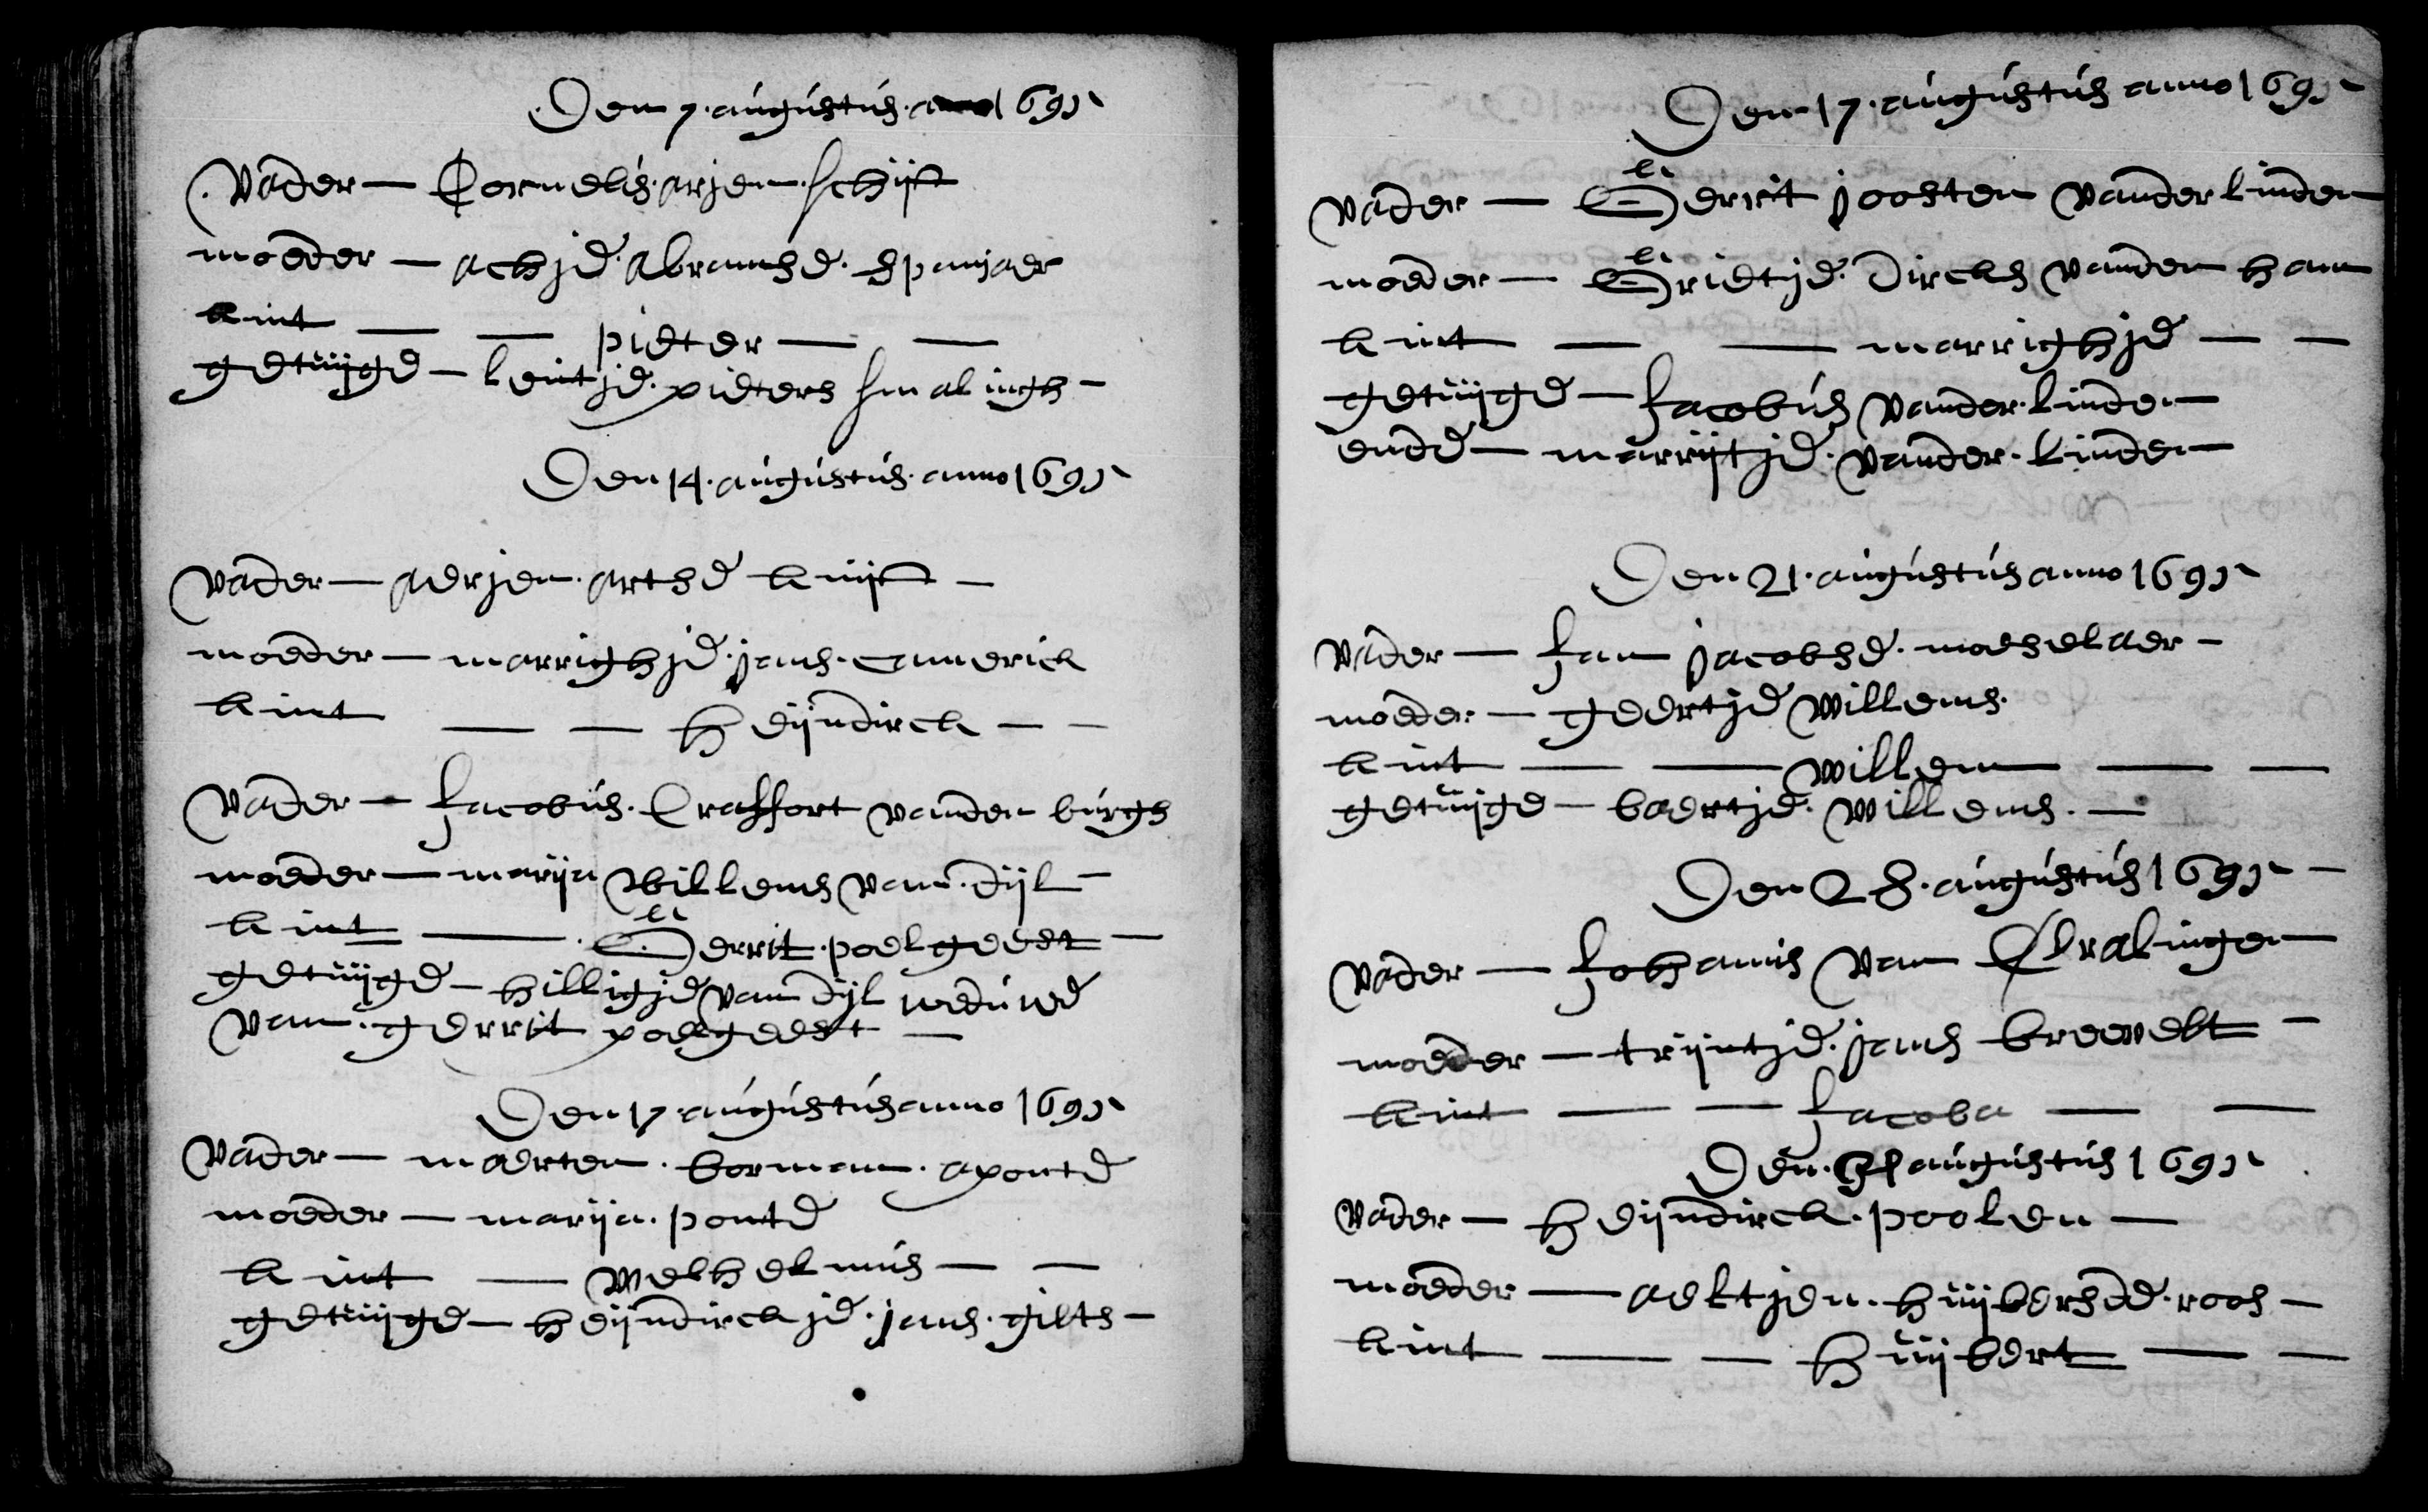 Den 7. augustus. anno 1695
Vader — Cornelis. arjen. schijft
moeder — achje. Abramse. spanjaer
kint — — pieter — —
getuijge — leintje. pieters smalingh —
Den 14. augustus. anno 1695
Vader — Aerjen. artse kuijft —
moeder — marrighje. jans. camerick
kint — — heijndirck — —
Vader — Jacobus. Craffort vanden burgh
moeder — marija Willems van. dijl —
kint — Gerrit. poelgeest —
getuijge — hilligje van dijl weduwe
van. gerrit poelgeest —
Den 17. augustus anno 1695
Vader — maerten. borman. aponte
moeder — marija. ponte
kint — welhelmus — —
getuijge — heijndirckje. jans. gilts —
Den 17. augustus anno 1695
Vader — Gerrit joosten vander linden
moeder — Grietje. Dircks vanden ham
kint — — marrighje — —
getuijge — Jacobus vander. linden
ende — marrijtje. vander. linden
Den 21. augustus anno 1695
Vader — Jan jacobse. moeselaer —
moeder — geertje willems.
kint — — willem — —
getuijge — baertje. willems. —
Den 28. augustus 1695 —
Vader — Johannis van Cralingen
moeder — trijntje. jans breevelt —
kint — — Jacoba — —
Den. 31 augustus 1695
Vader — heijndirck. poolen —
moeder — aeltjen. huijbersde. roos —
kint — — huijbert — —